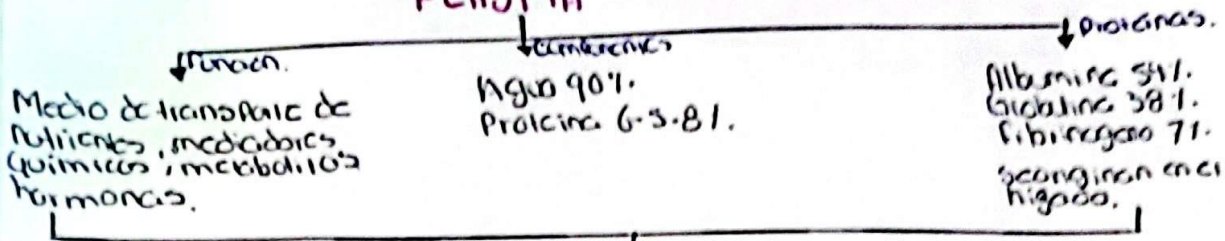 Función.
Medio de transporte de
nutrientes, mediadores
químicos, metabolitos
hormonas.
Agua 90%.
Proteína 6.5-8%.
Proteínas.
Albumina 54%.
Globulina 38%.
Fibrinogeno 7%.
se originan en el
hígado.